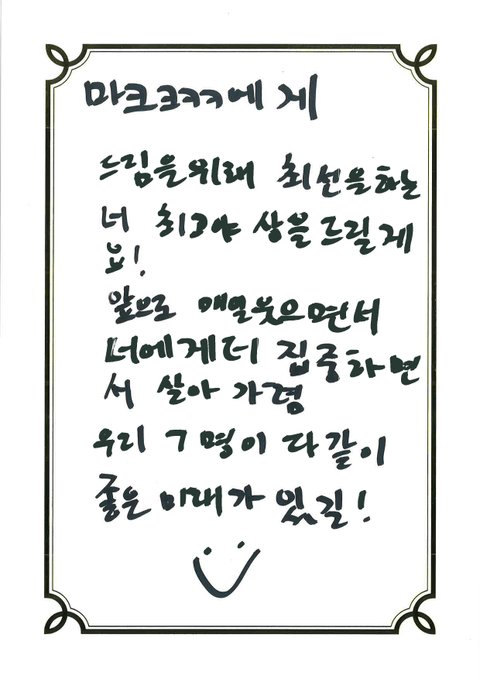 마크크ㅋㅋ에게
드림을위해 최선을하는
너 최고야 상을드릴게
요!
앞으로 매일웃으면서
너에게더 집중하면
서 살아 가렴
우리 7명이 다같이
좋은 미래가 있길!